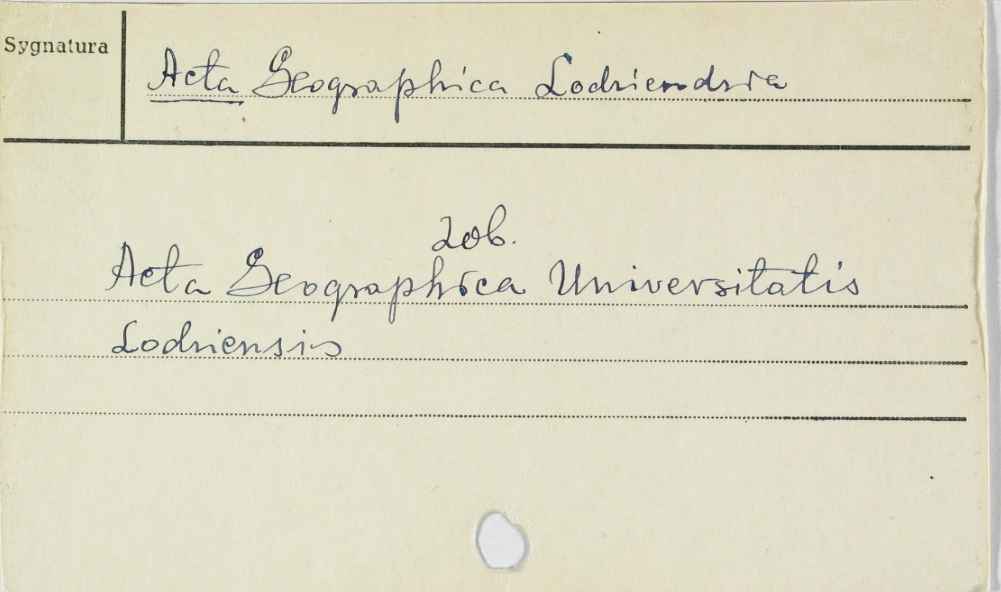 Sygnatura
Acta Geographica Lodziendzia
zob.
Acta Geographica Universitatis
Lodziensis